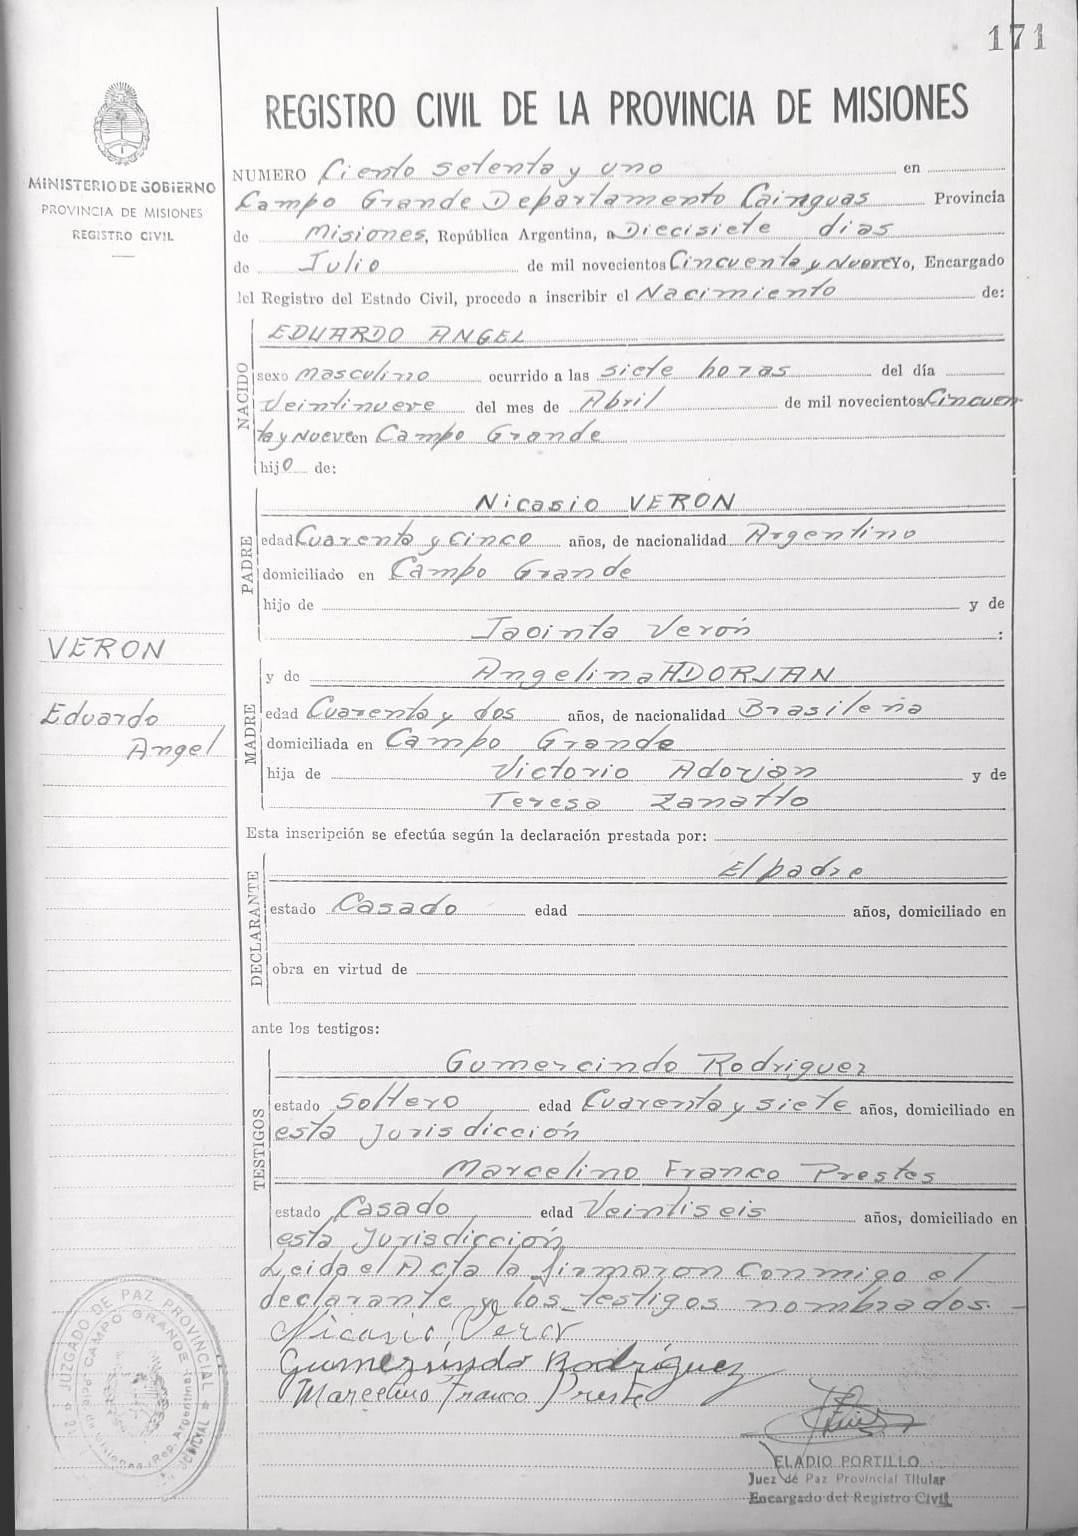 171
REGISTRO CIVIL DE LA PROVINCIA DE MISIONES
MINISTERIO DE GOBIERNO
PROVINCIA DE MISIONES
REGISTRO CIVIL
NUMERO Ciento setenta y uno en
Campo Grande Departamento Cainguas Provincia
de Misiones, República Argentina, a Diecisiete dias
de Julio de mil novecientos Cincuenta y Nueve Yo, Encargado
del Registro del Estado Civil, procedo a inscribir el Nacimiento de:
NACIDO
EDUARDO ANGEL
sexo masculino ocurrido a las siete horas del día
Veintinueve del mes de Abril de mil novecientos Cincuen
ta y Nueve en Campo Grande
hijo de:
PADRE
Nicasio VERON
edad Cuarenta y Cinco años, de nacionalidad Argentino
domiciliado en Campo Grande
hijo de y de
Jacinta Verón :
VERON
Eduardo
Angel
MADRE
y de Angelina ADORJAN
edad Cuarenta y dos años, de nacionalidad Brasileña
domiciliada en Campo Grande
hija de Victorio Adorjan y de
Teresa Zanatto
Esta inscripción se efectúa según la declaración prestada por:
DECLARANTE
El padre
estado Casado edad años, domiciliado en
obra en virtud de
ante los testigos:
TESTIGOS
Gumercindo Rodriguez
estado Soltero edad Cuarenta y siete años, domiciliado en
esta Jurisdicción
Marcelino Franco Prestes
estado Casado edad Veintiseis años, domiciliado en
esta Jurisdicción
Leida el Acta la firmaron conmigo el
declarante y los testigos nombrados.
Nicasio Veron
Gumersindo Rodríguez
Marcelino Franco Preste
JUZGADO DE PAZ PROVINCIAL
CAMPO GRANDE
Pcia. de Misiones (Rep. Argentina)
ELADIO PORTILLO
Juez de Paz Provincial Titular
Encargado del Registro Civil